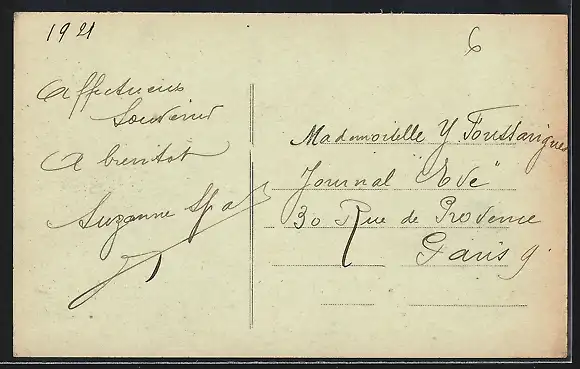 1921
6
Affectueux
Souvenir
A bientot
Suzanne
Mademoiselle Y
Journal "Eve"
30 Rue de Provence
Paris 9